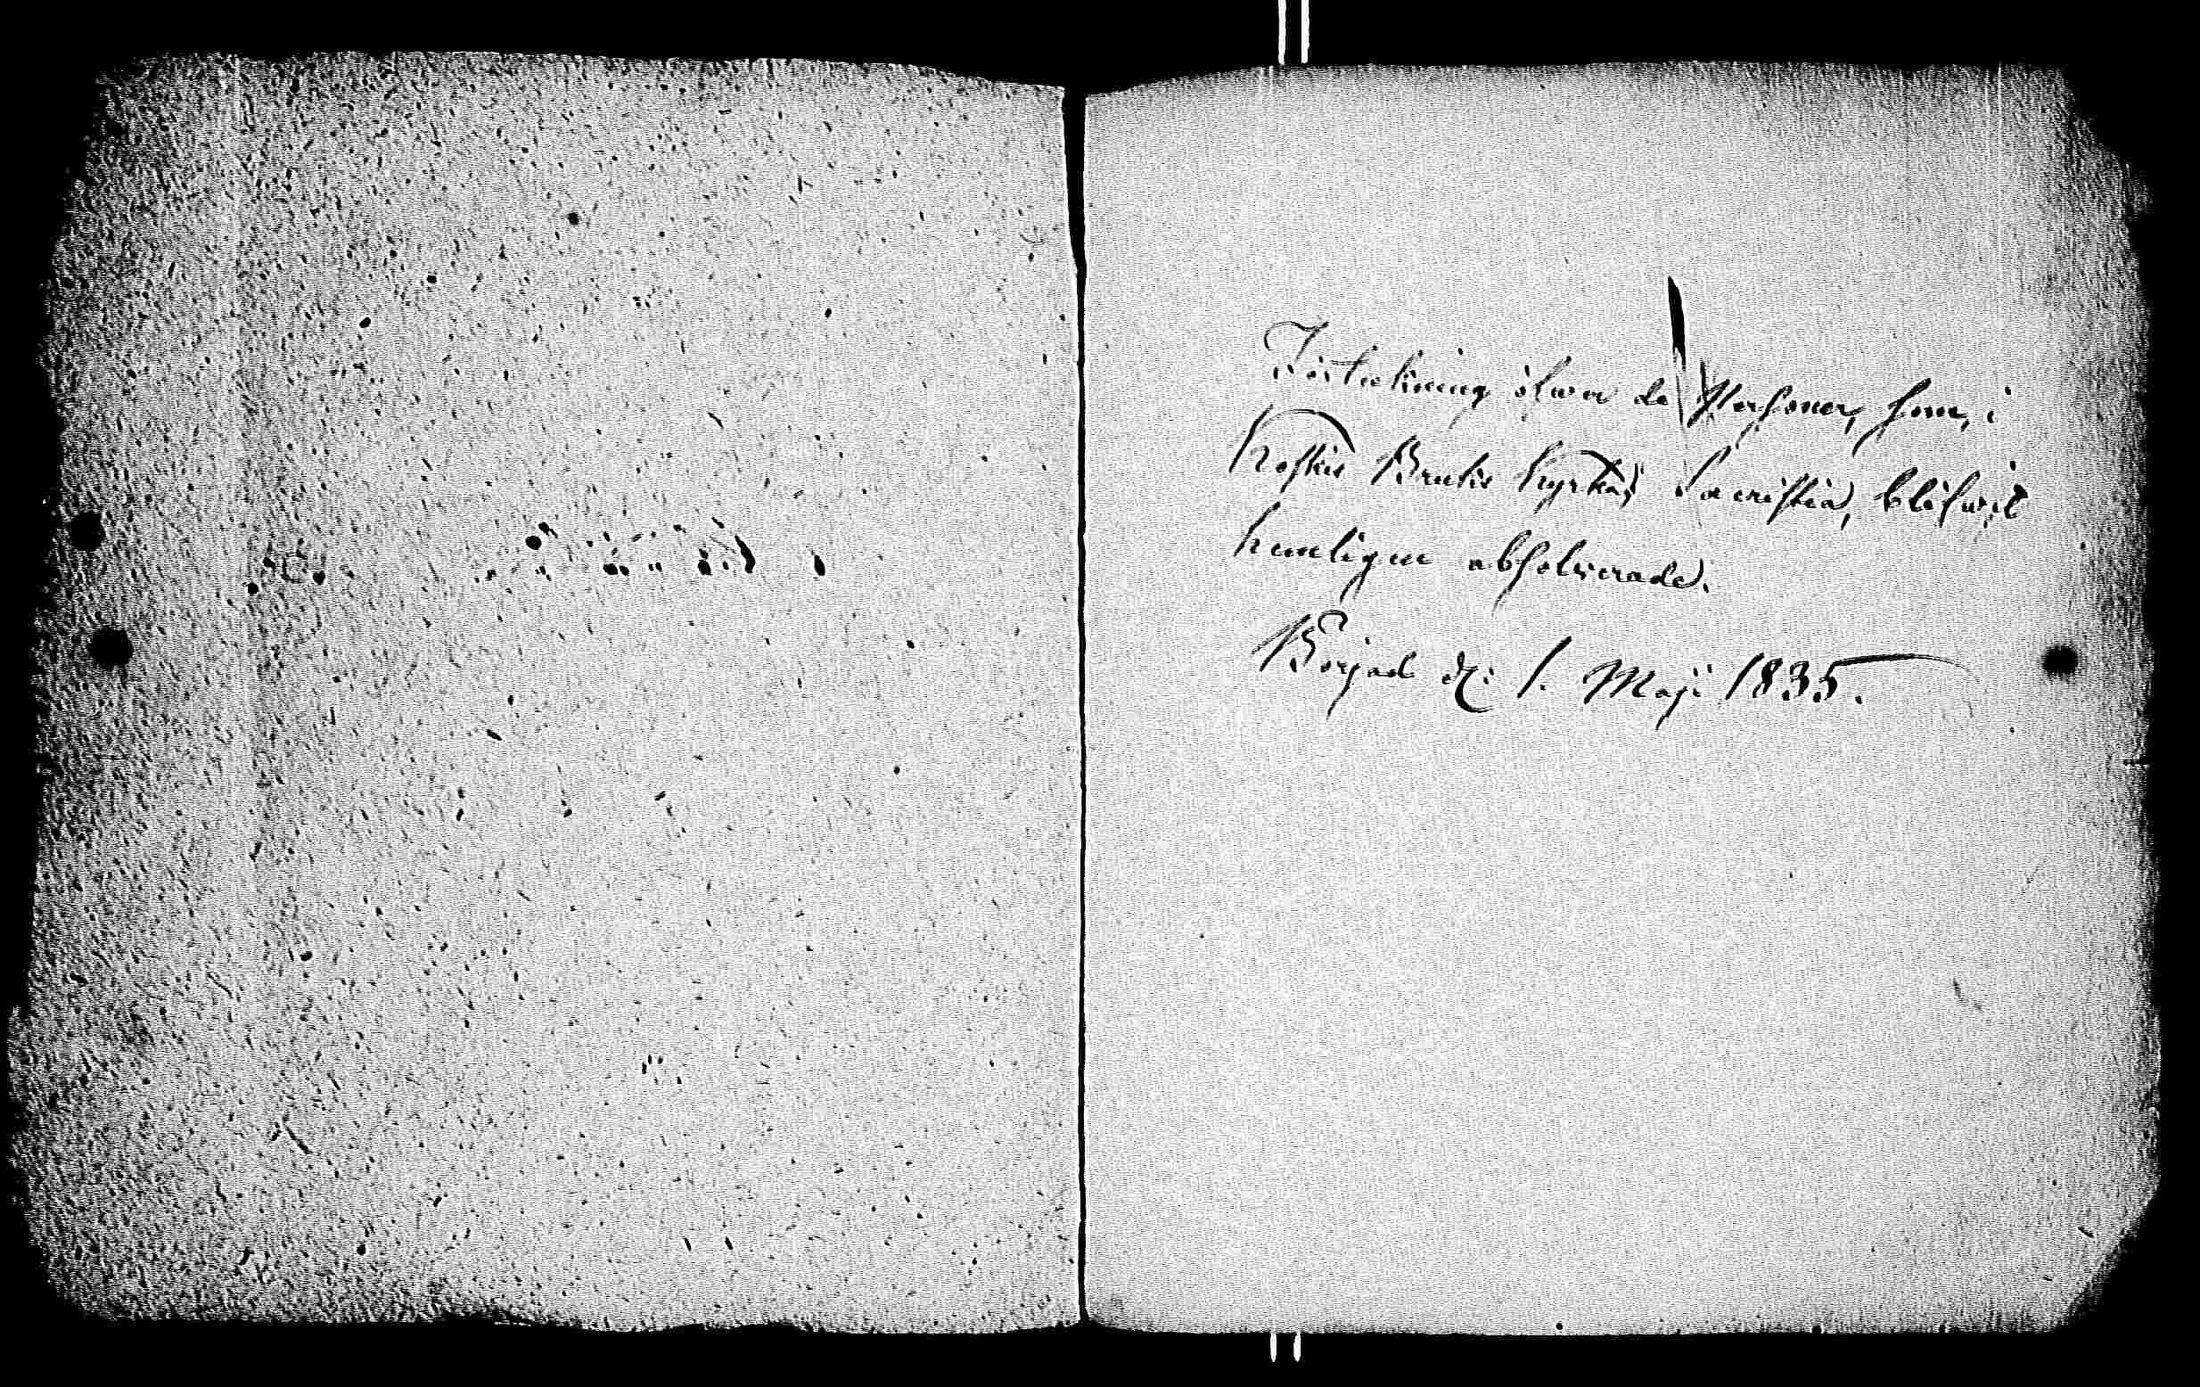 Förtekning öfwer de Personer, som, i
Bruks Kyrkas Sacristia, blifwit
hemligen absolverade.
Börjad d: 1. Maji 1835.